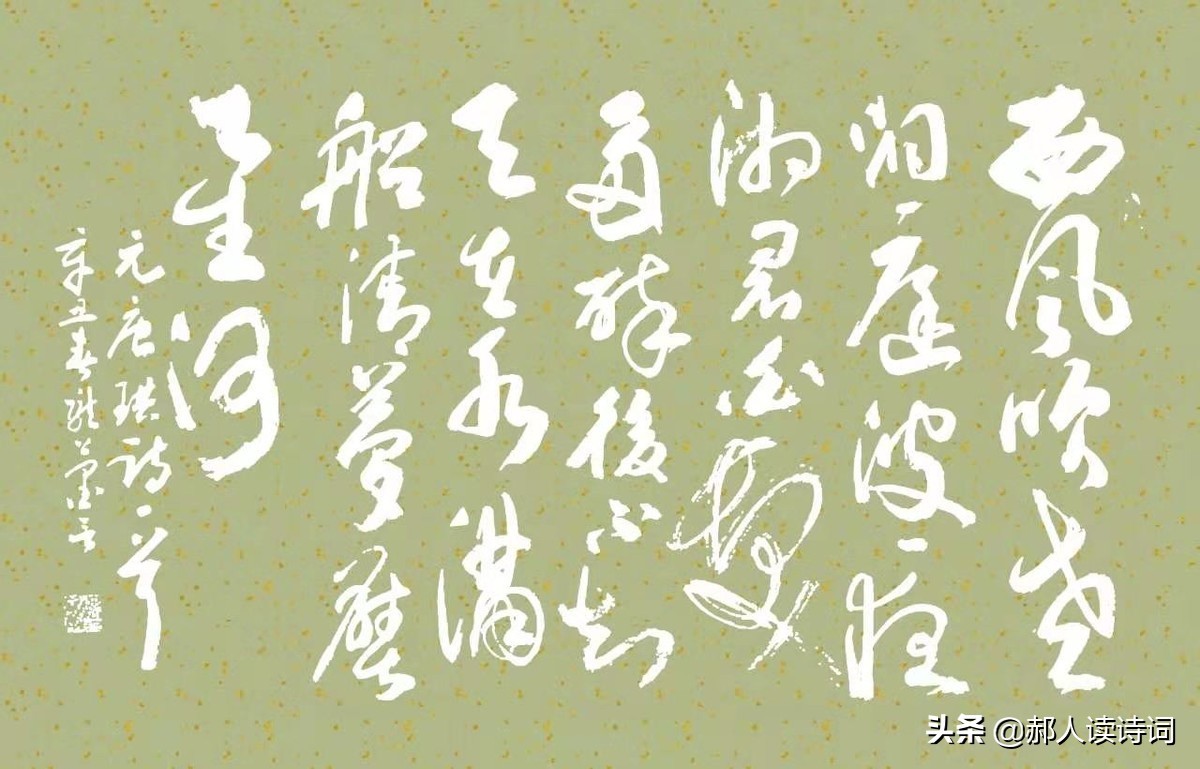 西風吹老
洞庭波一夜
湘君白髮
多醉後不知
天在水滿
船清夢壓
星河
元唐珙詩一首
辛丑春
头条 @郝人读诗词